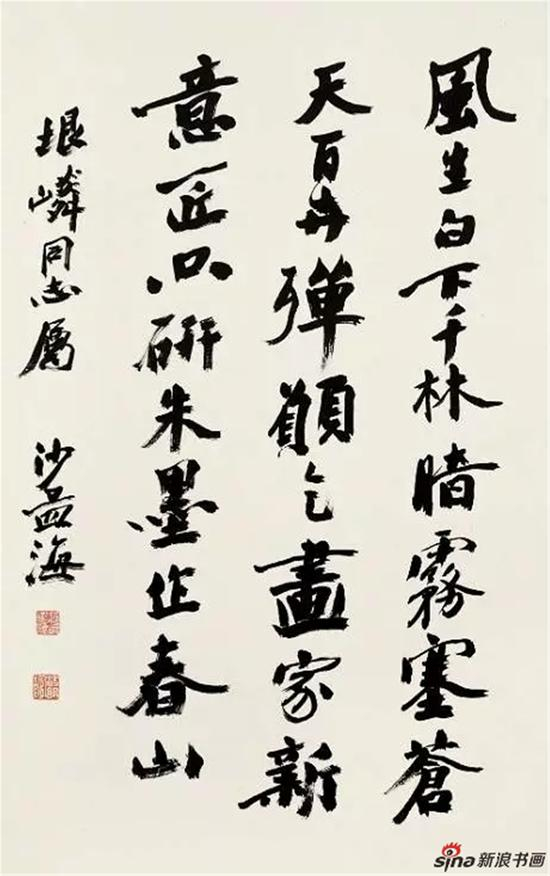 風生白下千林暗霧塞蒼
天百卉殫願乞畫家新
意匠只研朱墨作春山
垠嶙同志屬 沙孟海
sina新浪书画